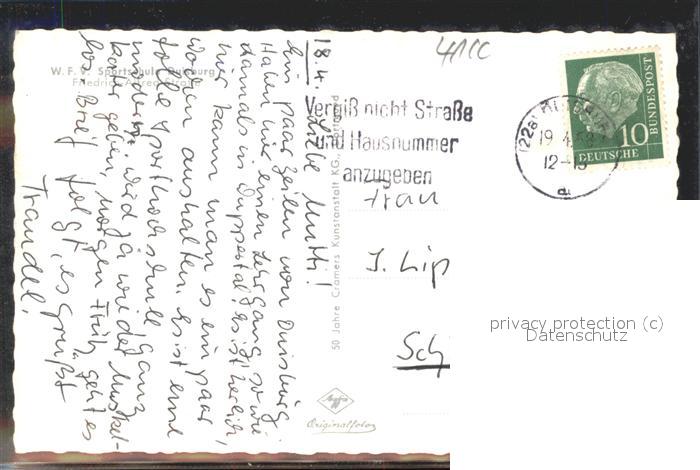 W. F. V. Sportschule Duisburg
Friedrich-Alfred-Straße
18.4. Liebe Mutti!
Ein paar Zeilen von Duisburg.
Haben hier einen Lehrgang, so wie
damals in Wuppertal. Es ist herrlich,
hier kann man es ein paar
Wochen aushalten. Es ist eine
tolle Sporthochschule, ganz
modern. wird ja wieder Muskel-
kater geben, morgen früh geht es
los. Brief folgt, es grüßt
Traudel.
50 Jahre Cramers Kunstanstalt KG., Dortmund
Agfa
Originalfoto
Vergiß nicht Straße
und Hausnummer
anzugeben
(22a)
19.4.58
12-13
a
10
DEUTSCHE
BUNDESPOST
Frau
J. Lip
Sch
privacy protection (c)
Datenschutz